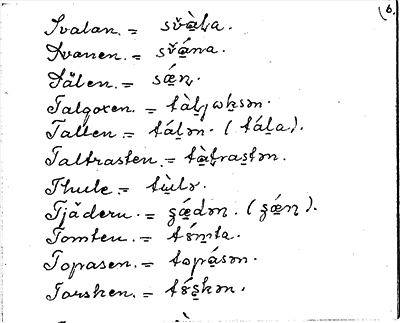 6.
Svalan. = svà̀ḷa.
Svanen. = svána.
Sälen. = sǽn̥.
Talgoxen. = tàljwksən.
Tallen. = tálən. (tála).
Taltrasten. = tàltrastən.
Thule. = tùlə.
Tjädern. = ʂǽdən. (ʂǽn̥).
Tomten. = tómta.
Topasen. = topásən.
Torsken. = tóʂkən.